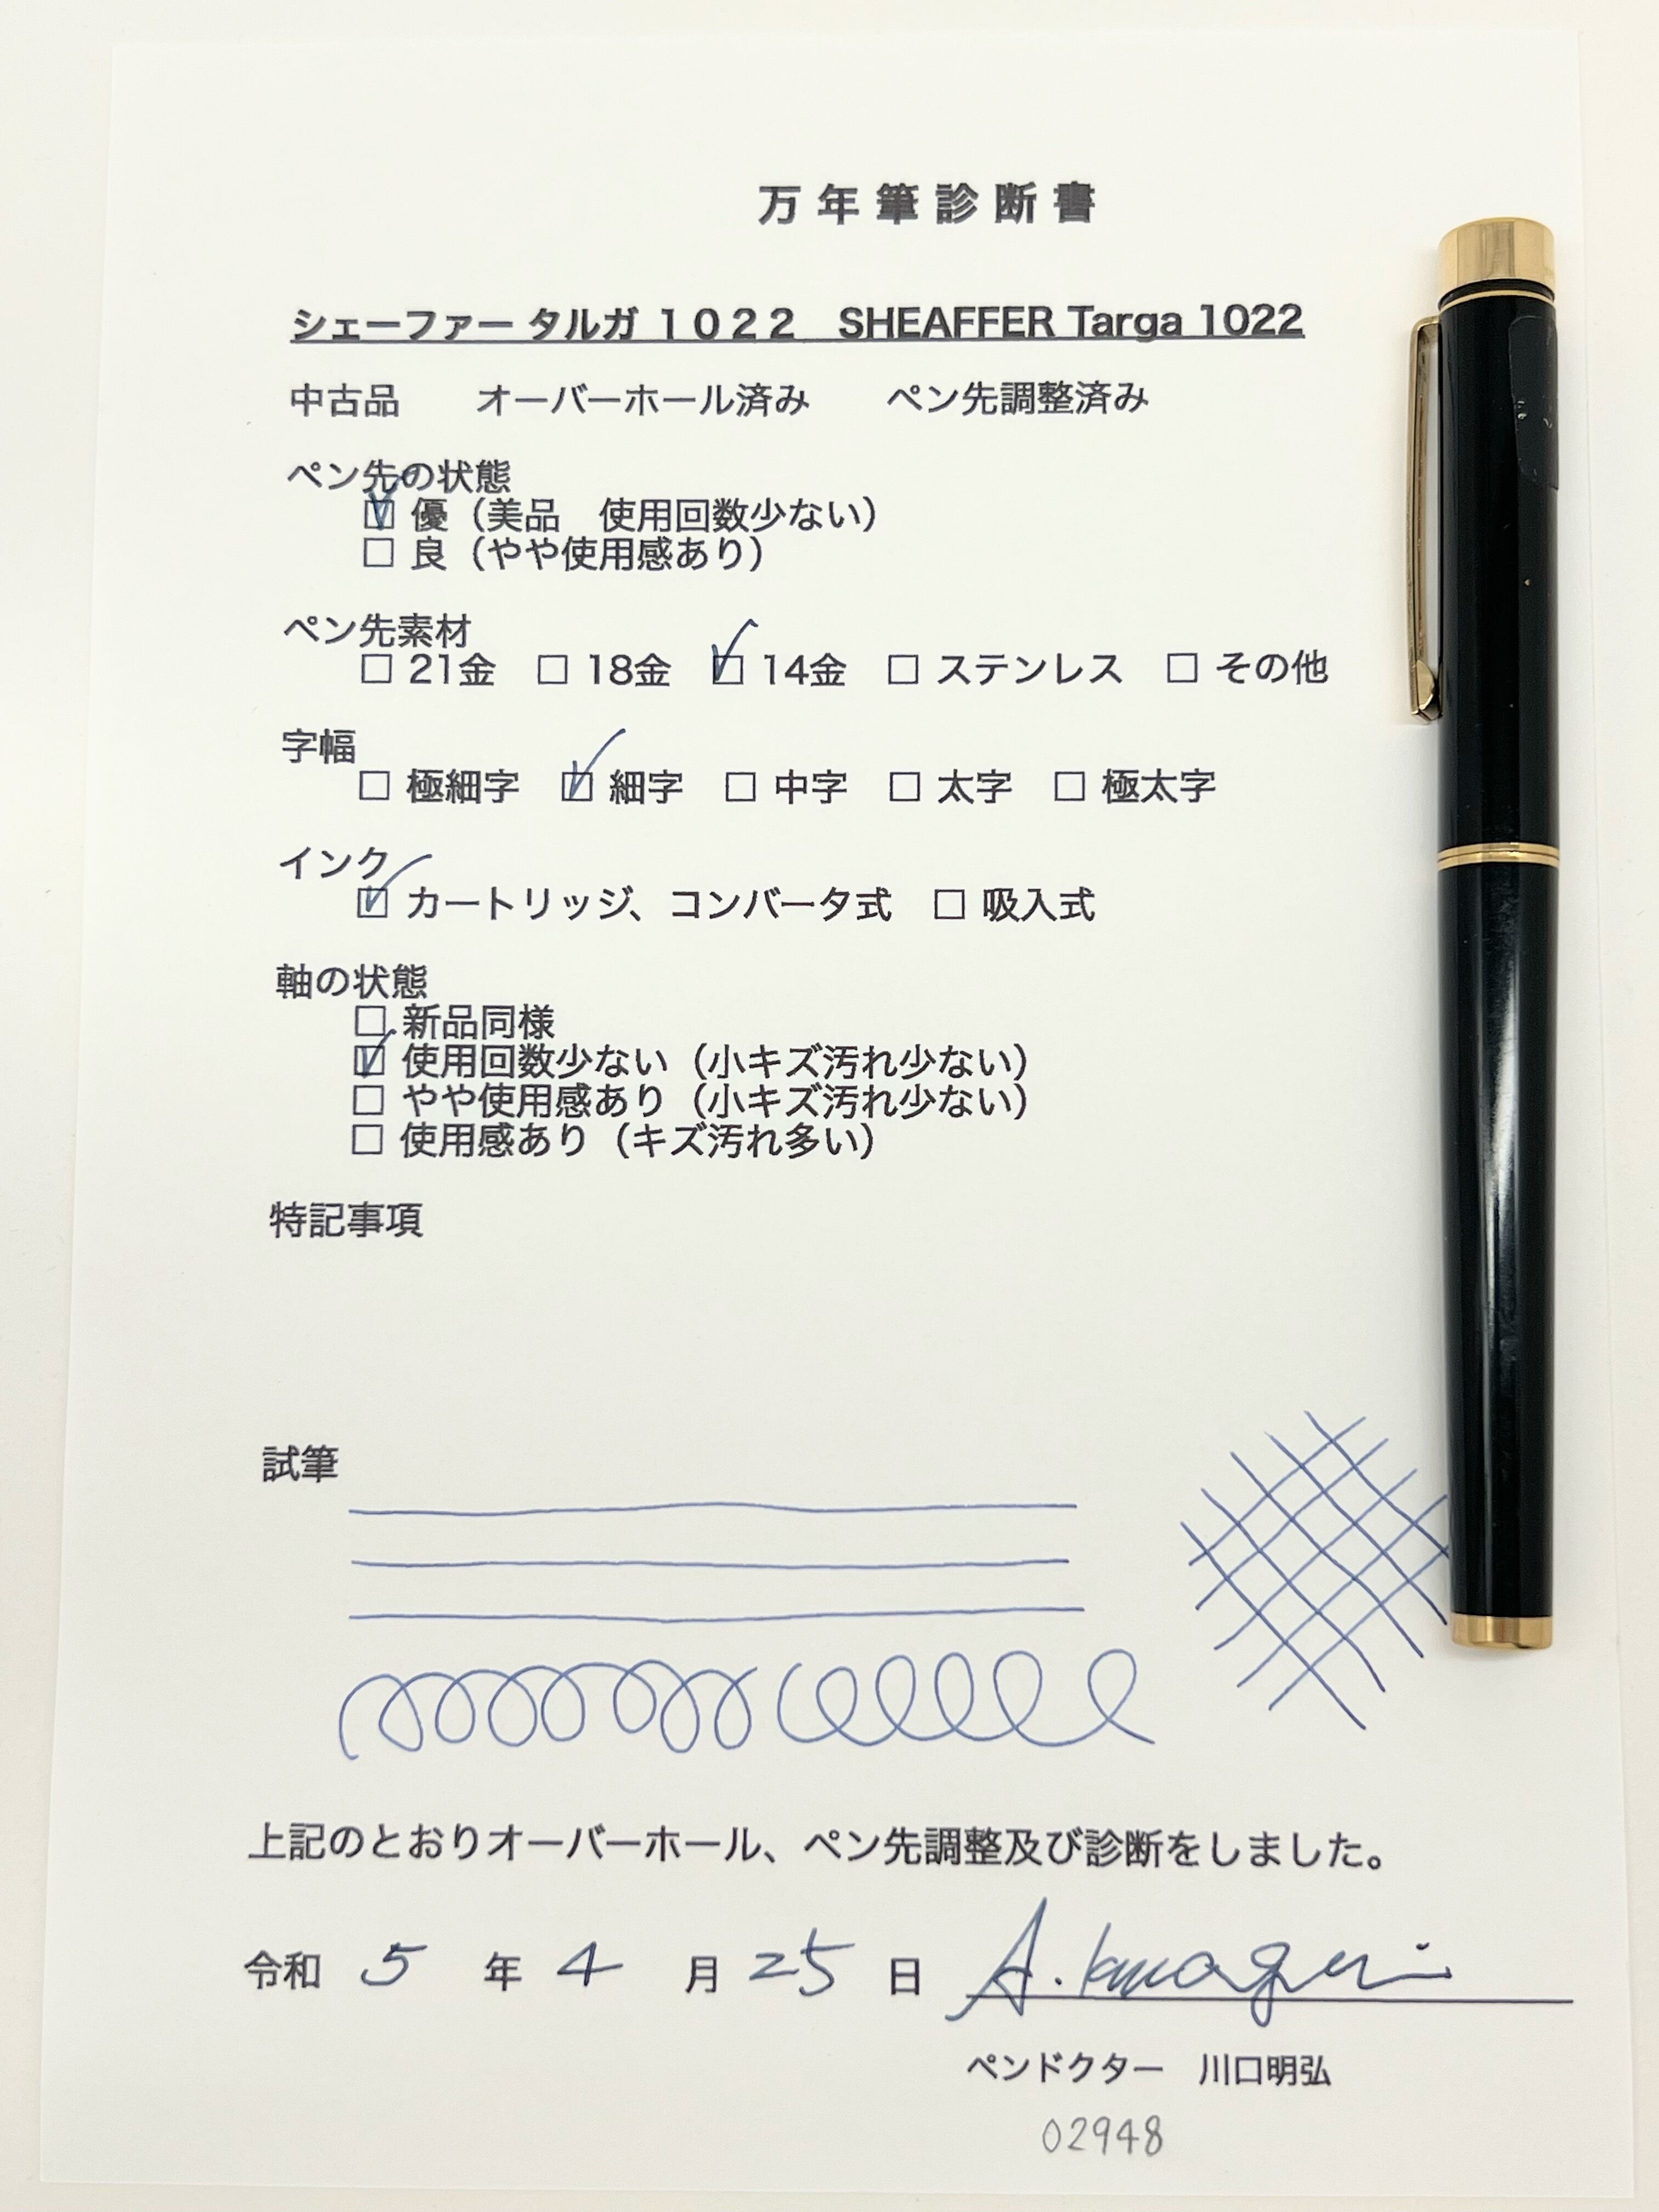 万年筆診断書
シェーファー タルガ １０２２　SHEAFFER Targa 1022
中古品　オーバーホール済み　ペン先調整済み
ペン先の状態
☑ 優（美品　使用回数少ない）
☐ 良（やや使用感あり）
ペン先素材
☐ 21金　☐ 18金　☑ 14金　☐ ステンレス　☐ その他
字幅
☐ 極細字　☑ 細字　☐ 中字　☐ 太字　☐ 極太字
インク
☑ カートリッジ、コンバータ式　☐ 吸入式
軸の状態
☐ 新品同様
☑ 使用回数少ない（小キズ汚れ少ない）
☐ やや使用感あり（小キズ汚れ少ない）
☐ 使用感あり（キズ汚れ多い）
特記事項
試筆
上記のとおりオーバーホール、ペン先調整及び診断をしました。
令和 5 年 4 月 25 日 A. Kawaguchi
ペンドクター　川口明弘
02948